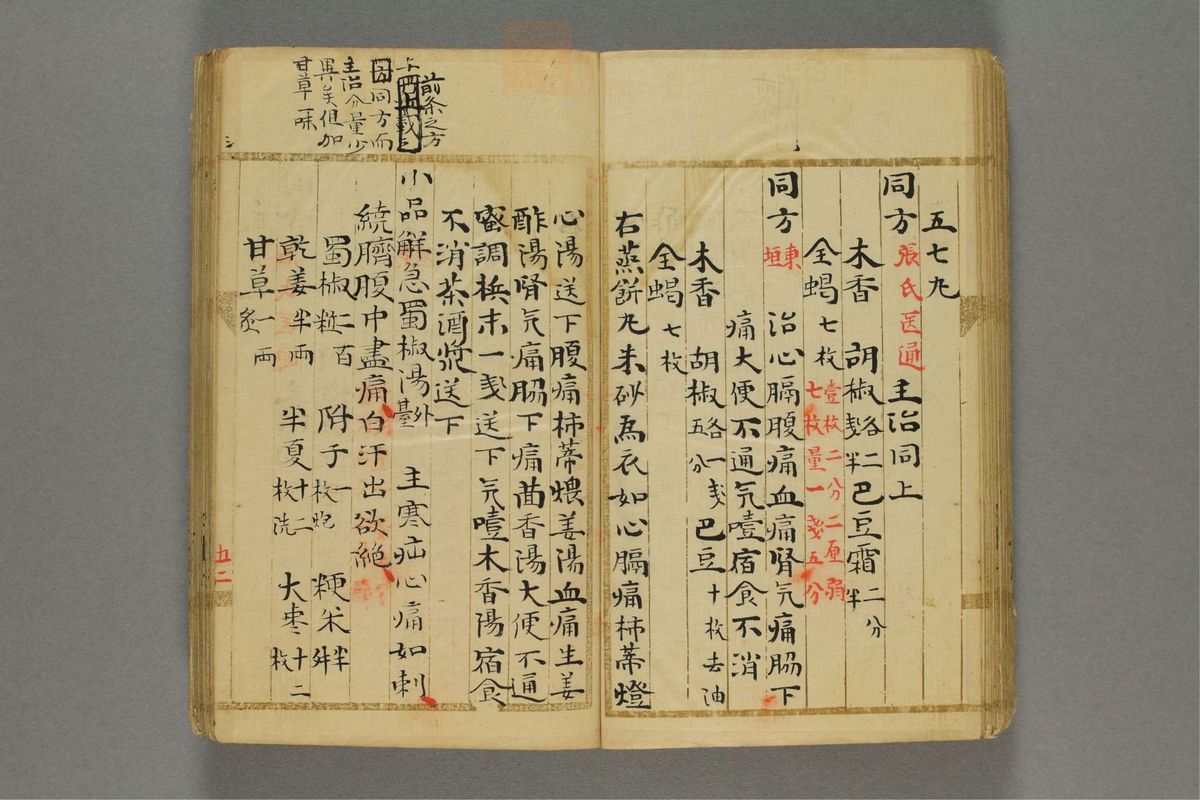 五七丸
同方 張氏医通 主治同上
木香 胡椒各二戔半 巴豆霜二分半
全蝎七枚 壹枚二分二厘弱 七枚量一戔五分
同方 東垣 治心膈腹痛血痛腎気痛脇下
痛大便不通気噎宿食不消
木香 胡椒各一戔五分 巴豆十枚去油
全蝎七枚
右蒸餅丸朱砂為衣如心膈痛柿蒂燈
心湯送下腹痛柿蒂煨姜湯血痛生姜
酢湯腎気痛脇下痛茴香湯大便不通
蜜調梹末一戔送下気噎木香湯宿食
不消茶酒漿送下
小品解急蜀椒湯 外臺 主寒疝心痛如刺
繞臍腹中盡痛白汗出欲絶
蜀椒二百粒 附子一枚炮 粳米半舛
乾姜半両 半夏十二枚洗 大棗十二枚
甘草一両炙
前条之方
同方而
主治分量少
異矣但加
甘草一味
五二